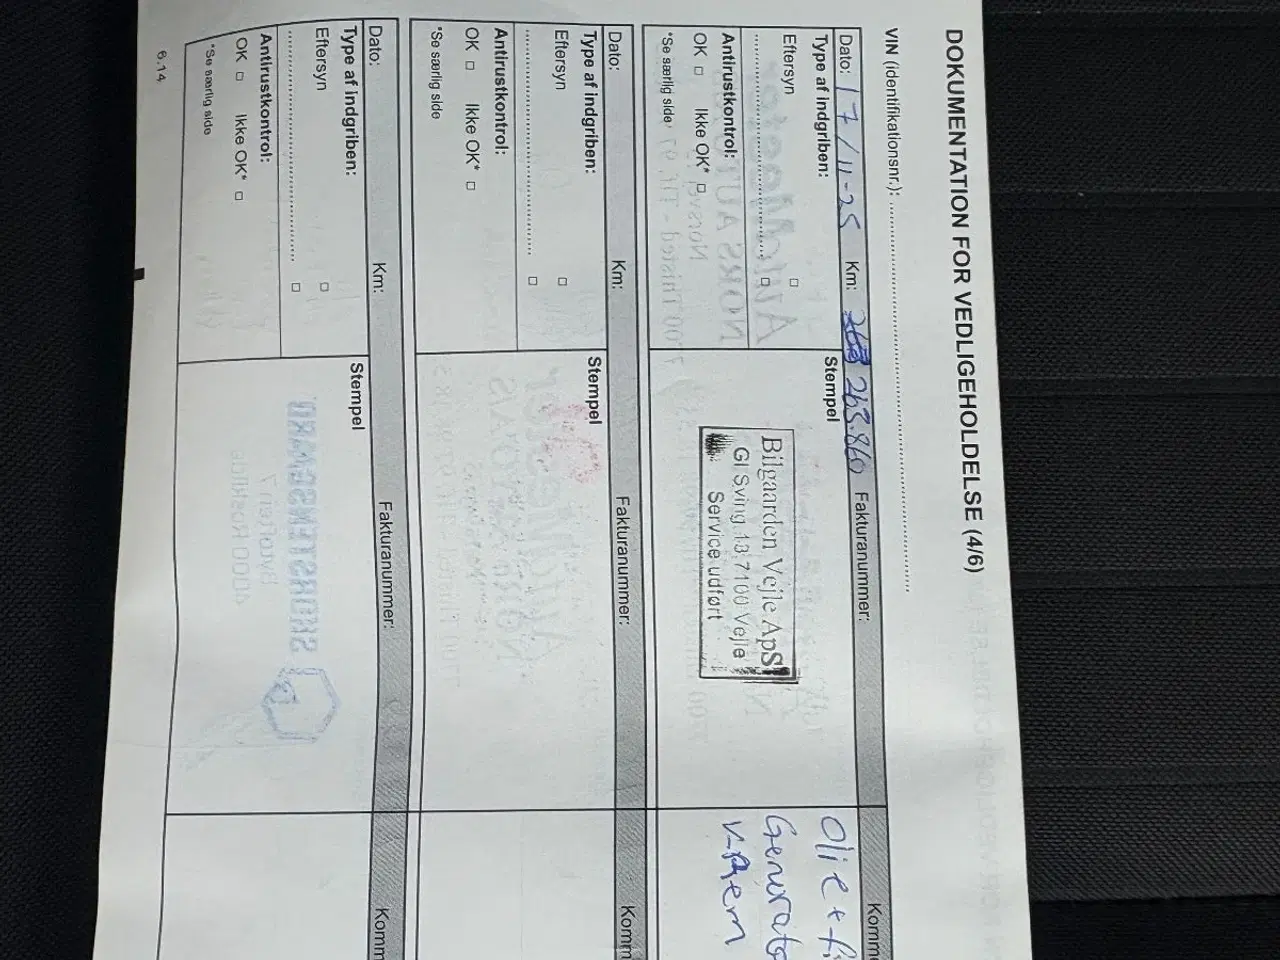 DOKUMENTATION FOR VEDLIGEHOLDELSE (4/6)
VIN (identifikationsnr.): ........................................
Dato: 17/11-25 Km: 263.860 Fakturanummer: Komme
Type af indgriben:
Eftersyn □
........................ □
Antirustkontrol:
OK □ Ikke OK* □
*Se særlig side
Stempel
Bilgaarden Vejle ApS
Gl Sving 13, 7100 Vejle
Service udført
Olie + fi
Generato
V-Rem
Dato: Km: Fakturanummer: Komm
Type af indgriben:
Eftersyn □
........................ □
Antirustkontrol:
OK □ Ikke OK* □
*Se særlig side
Stempel
Dato: Km: Fakturanummer: Komm
Type af indgriben:
Eftersyn □
........................ □
Antirustkontrol:
OK □ Ikke OK* □
*Se særlig side
Stempel
6.14